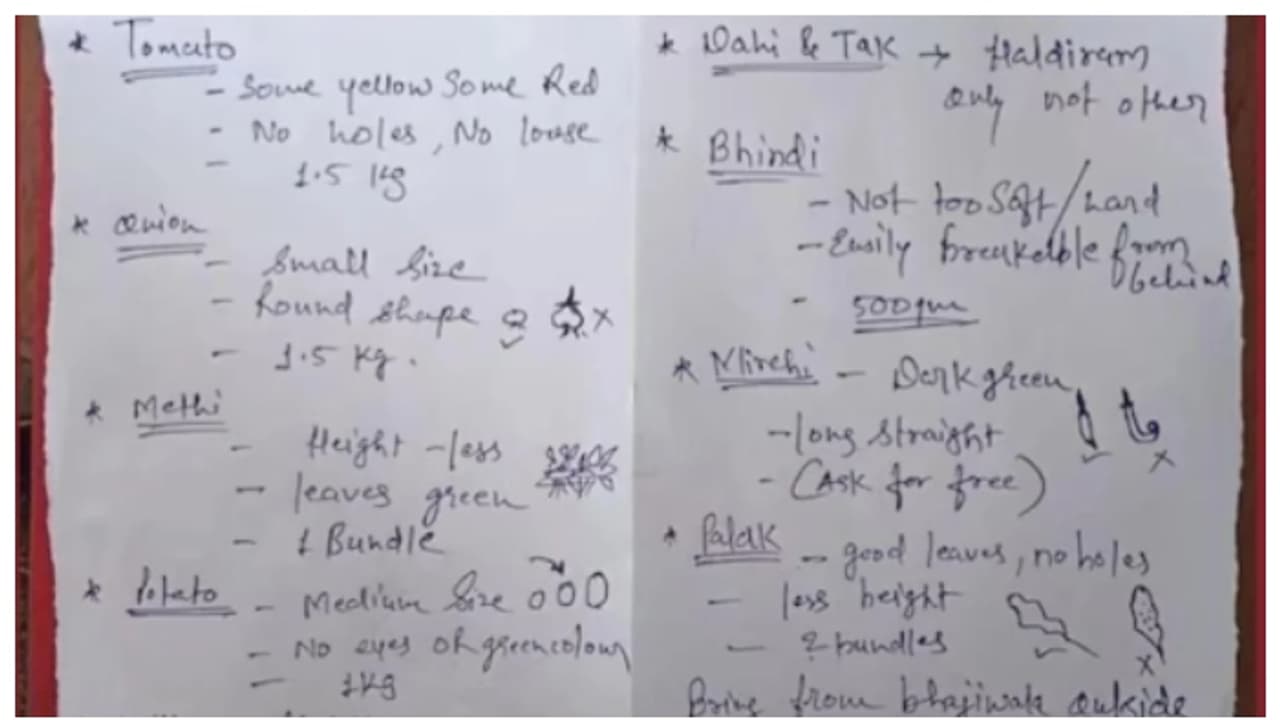 * Tomato
- Some yellow Some Red
- No holes, No louse
- 1.5 Kg
* Onion
- Small Size
- Round shape
- 1.5 Kg.
* Methi
- Height - less
- leaves green
- 1 Bundle
* Potato - Medium Size
- No eyes or green colour
- 1 kg
* Dahi & Tak → Haldiram
Only not other
* Bhindi
- Not too Soft / hard
- Easily breakelble from
behind
- 500 gm
* Mirchi - Dark green
- long straight
- (Ask for free)
* Palak - good leaves, no holes
- less height
- 2 bundles
Bring from bhajiwala outside